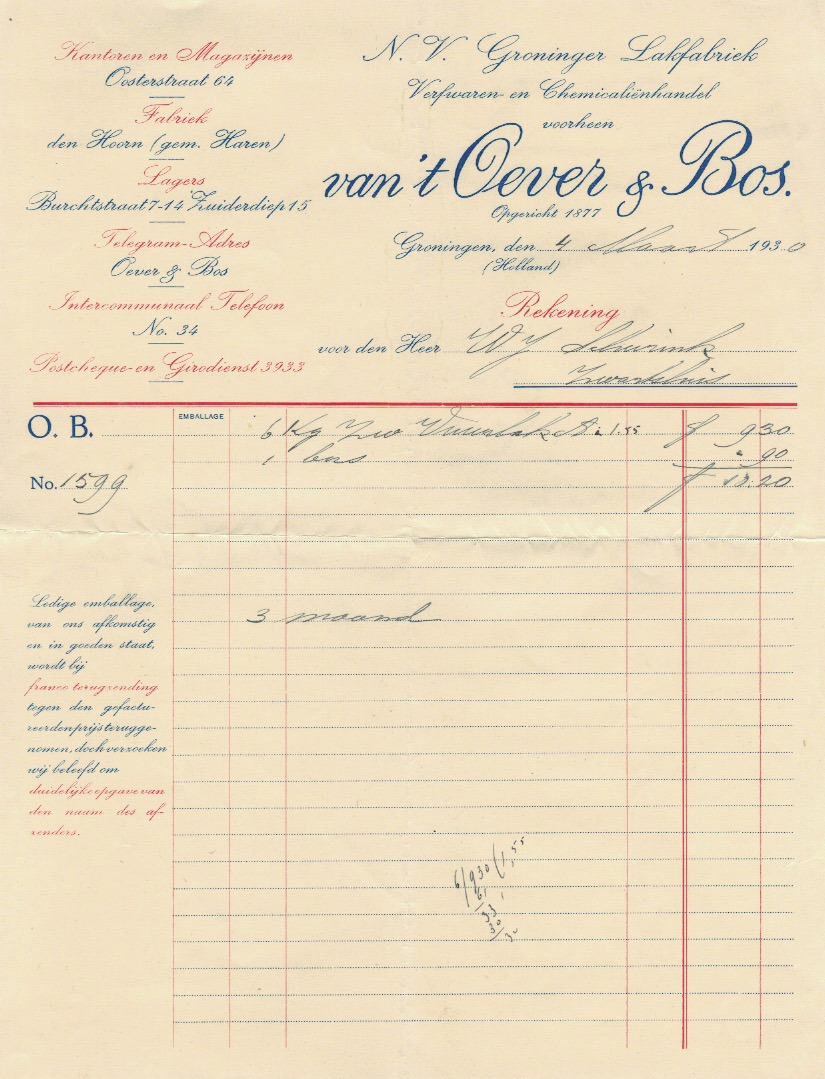 Kantoren en Magazijnen
Oosterstraat 64
Fabriek
den Hoorn (gem. Haren)
Lagers
Burchtstraat 7-14 Zuiderdiep 15
Telegram-Adres
Oever & Bos
Intercommunaal Telefoon
No. 34
Postcheque- en Girodienst 3933
N. V. Groninger Lakfabriek
Verfwaren- en Chemicaliënhandel
voorheen
van 't Oever & Bos.
Opgericht 1877
Groningen, den 4 Maart 1930
(Holland)
Rekening
voor den Heer W J
O. B.
EMBALLAGE
6 Kg Zw Vuurlak A à 1.55 f 9 30
1 bus " 90
No. 1599
f 10.20
3 maand
Ledige emballage,
van ons afkomstig
en in goeden staat,
wordt bij
franco terugzending
tegen den gefactu-
reerden prijs terugge-
nomen, doch verzoeken
wij beleefd om
duidelijke opgave van
den naam des af-
zenders.
6/930 (1,55
6
33
30
30